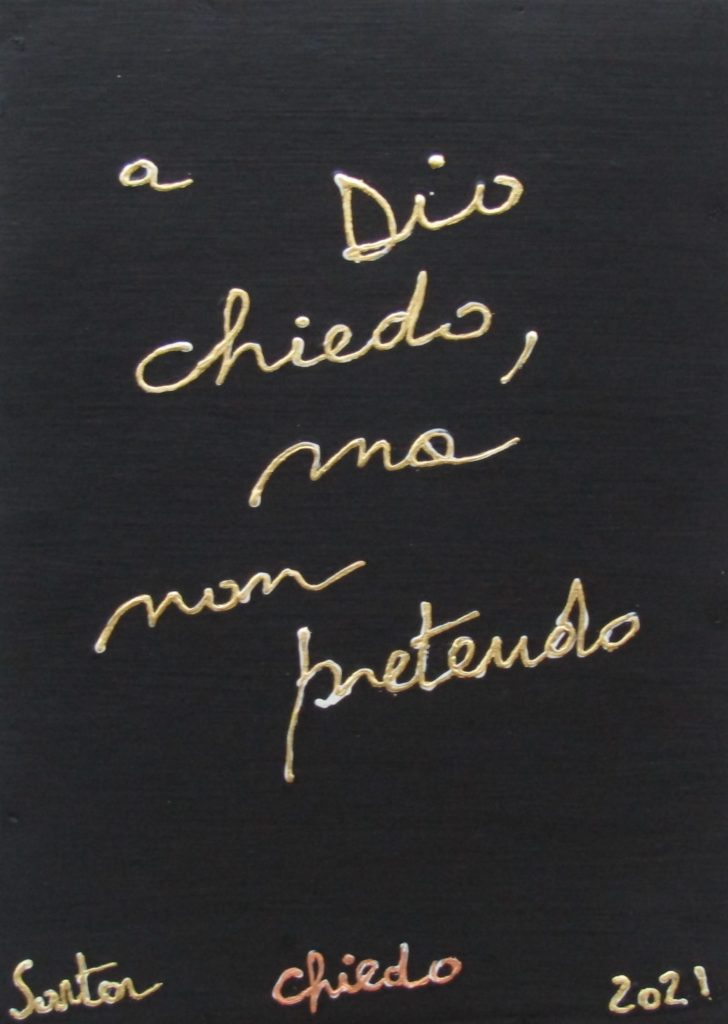 a Dio
chiedo,
ma
non
pretendo
Sartor chiedo 2021